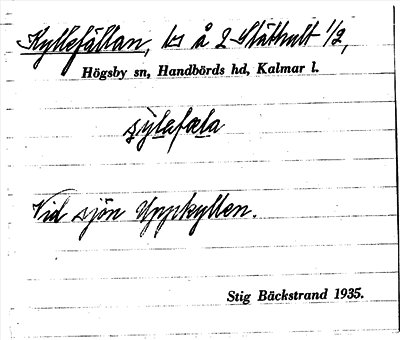 Kyllefällan, ls å 2 Slåthult 1/2,
Högsby sn, Handbörds hd, Kalmar l.
Vid sjön Uppkyllen.
Stig Bäckstrand 1935.